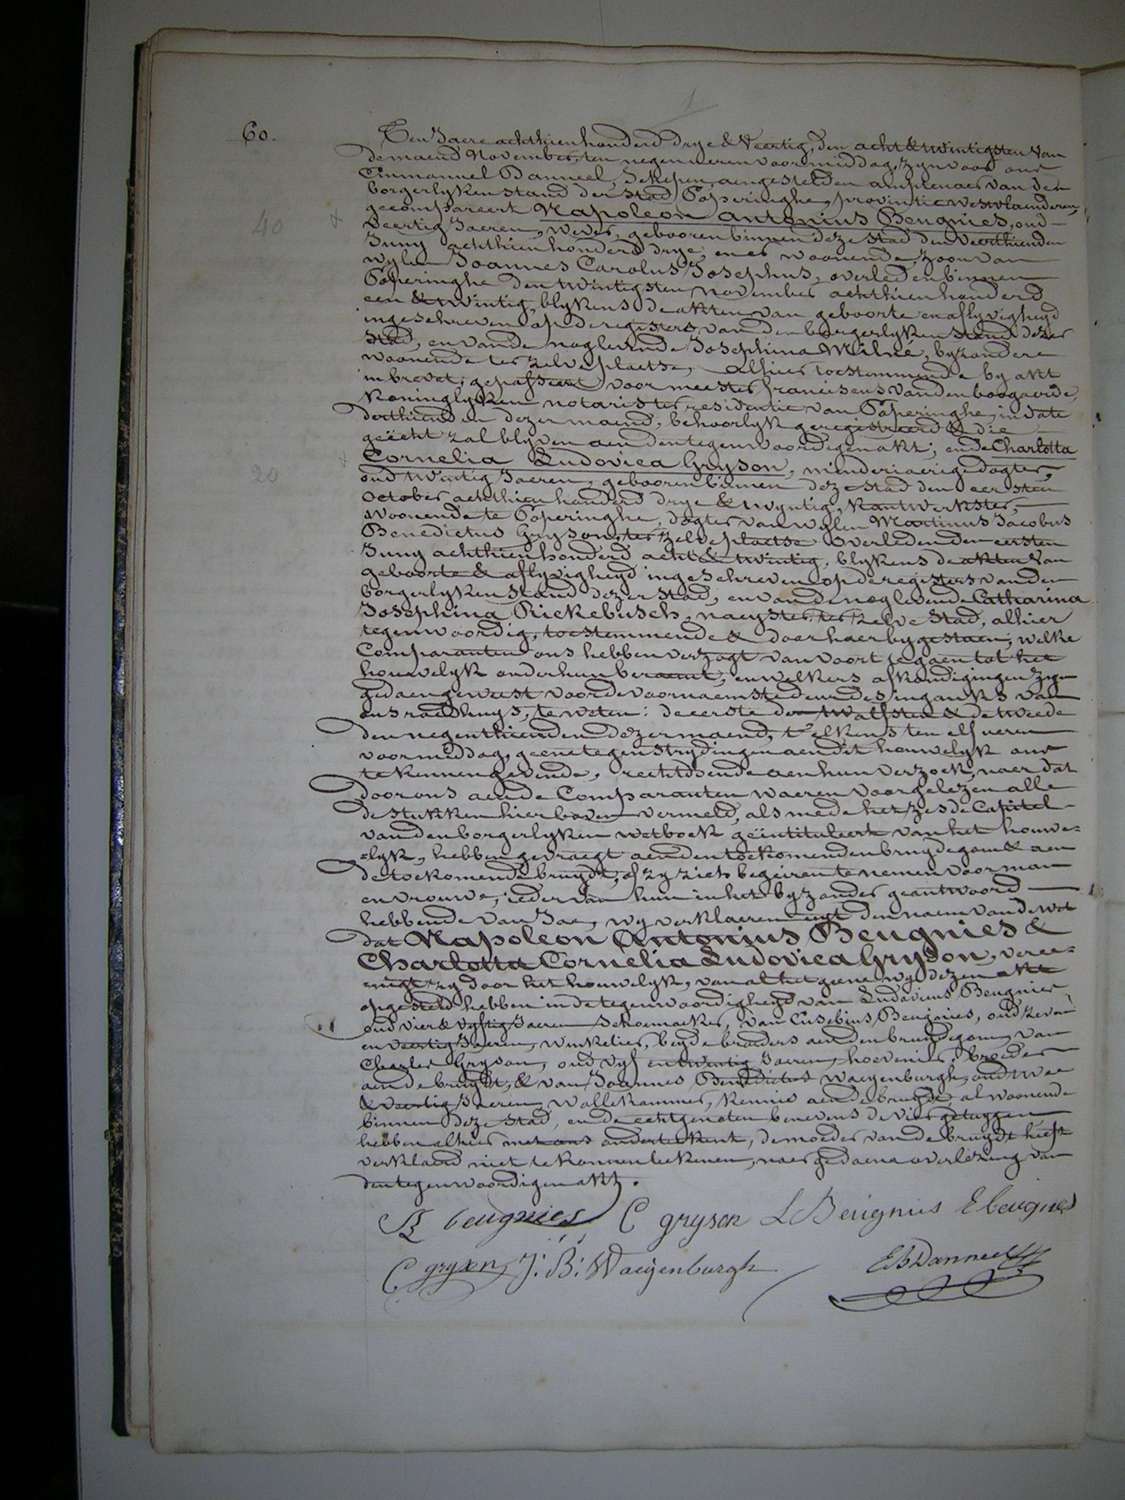 60.
Den Jaere achthien honderd drye & Veertig, den acht & twintigsten van
de maend November, ten negen ueren voormiddag, zyn voor ons
Emmanuel Danneel, Schepen, aengestelden amptenaer van den
borgerlyken stand der Stad Poperinghe, provintie Westvlaenderen,
gecompareert Napoleon Antonius Beugnies, oud
40
Veertig Jaeren, wever, gebooren binnen deze Stad den Veerthienden
Juny achthien honderd drye, en er woonende, zoon van
wylen Joannes Carolus Josephus, overleden binnen
Poperinghe den twintigsten November achthien honderd
een & twintig, blykens de akten van geboorte en aflyvigheyd
ingeschreven op de registers van den borgerlyken stand dezer
Stad, en van de naglevende Josephina Milne, byzondere
woonende ter zelve plaetse, alhier toestemmende by akt
in brevet, gepasseert voor meester franciscus vanden boogaerde,
Koninglyken notaris ter residentie van Poperinghe, in date
derthienden dezer maend, behoorlyk geregistreerd & die
geëcht zal blyven aen den tegenwoordigen akt; en de Charlotta
Cornelia Ludovica Gryson, minderjaerige dogter,
20
oud twintig Jaeren, gebooren binnen deze Stad den eersten
October achthien honderd drye & twyntig, Kantwerkster,
woonende te Poperinghe, dogter van wylen Martinus Jacobus
Benedictus Gryson, ter zelve plaetse overleden den eersten
Juny achthien honderd acht & twintig, blykens de akten van
geboorte & aflyvigheyd ingeschreven op de registers van den
borgerlyken Stand dezer Stad; en van de noglevende Catharina
Josephina Rickebusch, naeyster, ter zelve Stad, alhier
tegenwoordig, toestemmende & door haer bygestaen; welke
Comparanten ons hebben verzogt van voort te gaen tot het
houwelyk onder hun beraemt, en welkers afkondigingen zyn
gedaen geweest voor de voornaemste deure des ingankx van
ons raedhuys, te weten: de eerste den twalfsten & de tweede
den negenthienden dezer maend, t'elkens ten elf ueren
voormiddag, geene tegenstrydingen aen dit houwelyk ons
te kennen gevende, rechtdoende aen hun verzoek, naer dat
door ons aen de Comparanten waeren voorgelezen alle
de stukken hier boven vermeld, als mede het zesde Capittel
van den borgerlyken wetboek geïntituleert van het houwe-
elyk, hebben gevraegt aen den toekomenden bruydegom & aen
de toekomende bruydt, of zy zich begeiren te nemen voor man
en vrouwe; ieder van hun in het byzonder geantwoord
hebbende van Jae, wy verklaeren uyt den naem van de wet
dat Napoleon Antonius Beugnies &
Charlotta Cornelia Ludovica Gryson, veree-
nigt zyn door het houwelyk, van al het gene wy dezen akt
opgesteld hebben in de tegenwoordigheyd van Ludovicus Beugnies
oud vier & vyftig Jaeren Schoemaeker, van Eusebius Beugnies, oud zeven
en veertig Jaeren, winkelier, beyde broeders aen den bruydegom, van
Charles Gryson, oud vyf en twintig Jaeren, hovenier, broeder
aen de bruydt, & van Joannes Benedictus Waeyenburgh, oud twee
& veertig Jaeren, wollekammer, kennis aen de bruydt al woonende
binnen deze Stad, en de echtgenoten benevens de vier getuygen
hebben alhier met ons onderteekent, de moeder van de bruydt heeft
verklaerd niet te konnen teekenen, naer gedaene overlezing van
den tegenwoordigen akt.
beugnies C gryson L Beugnies E beugnies
C gryson J: B: Waeyenburgh EbDanneel